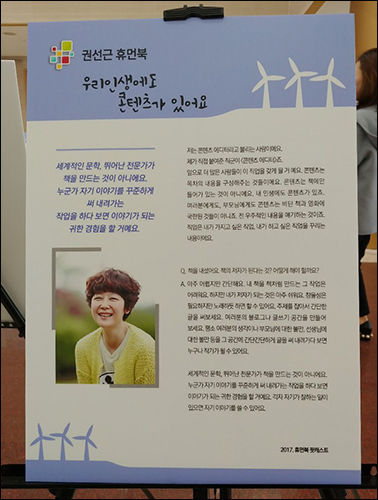 권선근 휴먼북
우리인생에도
콘텐츠가 있어요
세계적인 문학, 뛰어난 전문가가
책을 만드는 것이 아니에요.
누군가 자기 이야기를 꾸준하게
써 내려가는
작업을 하다 보면 이야기가 되는
귀한 경험을 할 거예요.
저는 콘텐츠 에디터라고 불리는 사람이에요.
제가 직접 붙여준 직군이 (콘텐츠 에디터)죠.
앞으로 더 많은 사람들이 이 직업을 갖게 될 거 예요. 콘텐츠는
목차의 내용을 구성해주는 것들이에요. 콘텐츠는 책에만
들어가 있는 것이 아니에요. 내 인생에도 콘텐츠가 있죠.
여러분에게도, 부모님에게도 콘텐츠는 비단 책과 영화에
국한된 것들이 아니죠. 전 우주적인 내용을 얘기하는 것이죠.
직업은 내가 가지고 싶은 직업, 내가 하고 싶은 직업을 꾸리는
내용이에요.
Q. 책을 내셨어요. 책의 저자가 된다는 것? 어떻게 해야 할까요?
A. 아주 어렵지만 간단해요. 내 책을 책처럼 만드는 그 작업은
어려워요. 하지만 내가 저자가 되는 것은 아주 쉬워요. 창물성은
필요하지만 노래하듯 하면 할 수 있어요. 주제를 잡아서 간단한
글을 써보세요. 여러분의 블로그나 글쓰기 공간을 만들어
보세요. 평소 여러분의 생각이나 부모님에 대한 불만, 선생님에
대한 불만 등을 그 공간에 간단간단하게 글을 써 내려가다 보면
누구나 작가가 될 수 있어요.
세계적인 문학, 뛰어난 전문가가 책을 만드는 것이 아니에요.
누군가 자기 이야기를 꾸준하게 써 내려가는 작업을 하다 보면
이야기가 되는 귀한 경험을 할 거예요. 각자 자기가 잘하는 일이
있으면 자기 이야기를 쓸 수 있어요.
2017, 휴먼북 팟캐스트